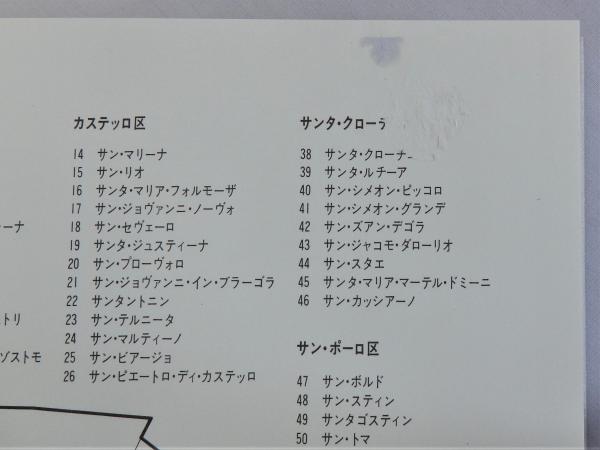 ーナ
トリ
ゾストモ
カステッロ区
14 サン・マリーナ
15 サン・リオ
16 サンタ・マリア・フォルモーザ
17 サン・ジョヴァンニ・ノーヴォ
18 サン・セヴェーロ
19 サンタ・ジュスティーナ
20 サン・プローヴォロ
21 サン・ジョヴァンニ・イン・ブラーゴラ
22 サンタントニン
23 サン・テルニータ
24 サン・マルティーノ
25 サン・ビアージョ
26 サン・ピエートロ・ディ・カステッロ
サンタ・クロー
38 サンタ・クロー
39 サンタ・ルチーア
40 サン・シメオン・ピッコロ
41 サン・シメオン・グランデ
42 サン・ズアン・デゴラ
43 サン・ジャコモ・ダローリオ
44 サン・スタエ
45 サンタ・マリア・マーテル・ドミーニ
46 サン・カッシアーノ
サン・ポーロ区
47 サン・ボルド
48 サン・スティン
49 サンタゴスティン
50 サン・トマ